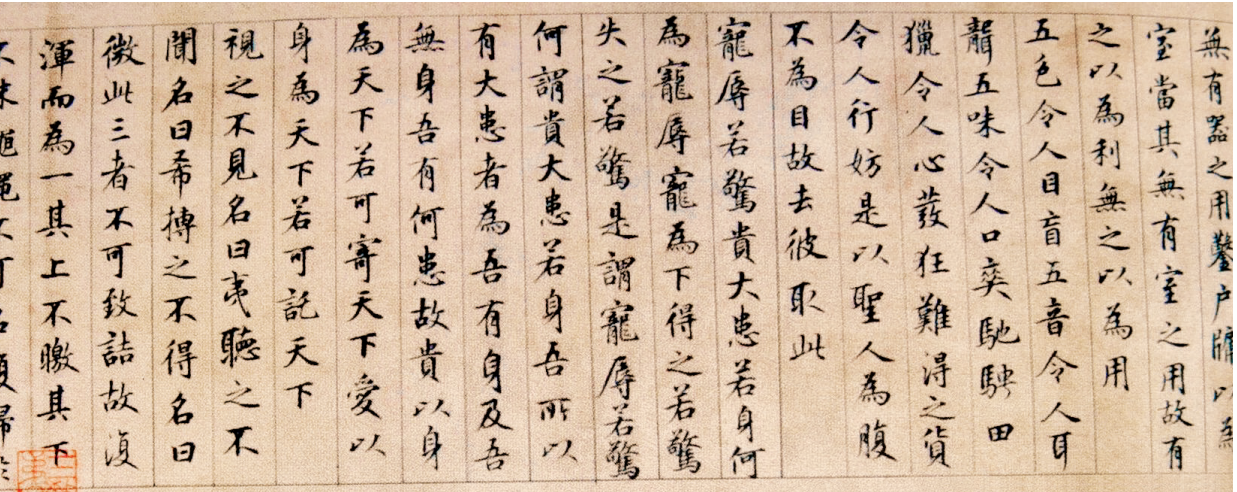 無有器之用鑿戶牖以為
室當其無有室之用故有
之以為利無之以為用
五色令人目盲五音令人耳
聾五味令人口爽馳騁田
獵令人心發狂難得之貨
令人行妨是以聖人為腹
不為目故去彼取此
寵辱若驚貴大患若身何
為寵辱寵為下得之若驚
失之若驚是謂寵辱若驚
何謂貴大患若身吾所以
有大患者為吾有身及吾
無身吾有何患故貴以身
為天下若可寄天下愛以
身為天下若可託天下
視之不見名曰夷聽之不
聞名曰希摶之不得名曰
微此三者不可致詰故復
渾而為一其上不曒其下
不昧繩繩不可名復歸於